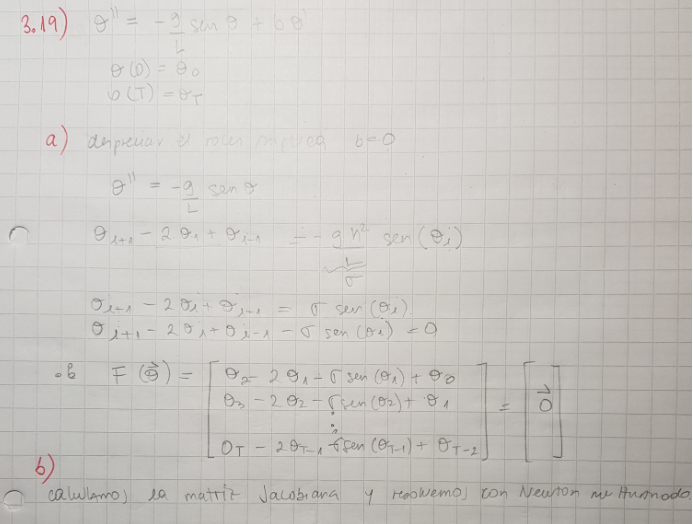 3.19) θ'' = -g/L sen θ + bθ'
θ(0) = θ₀
θ(T) = θ_T
a) despreciar el roce implica b=0
θ'' = -g/L sen θ
θᵢ₊₁ - 2θᵢ + θᵢ₋₁ = -g h²/L sen(θᵢ)
σ
θᵢ₊₁ - 2θᵢ + θᵢ₋₁ = σ sen(θᵢ)
θᵢ₊₁ - 2θᵢ + θᵢ₋₁ - σ sen(θᵢ) = 0
F(θ⃗) = [ θ₂ - 2θ₁ - σ sen(θ₁) + θ₀
θ₃ - 2θ₂ - σ sen(θ₂) + θ₁
⋮
θ_T - 2θ_T₋₁ - σ sen(θ_T₋₁) + θ_T₋₂ ] = [ 0⃗ ]
b)
calculamos la matriz Jacobiana y resolvemos con Newton